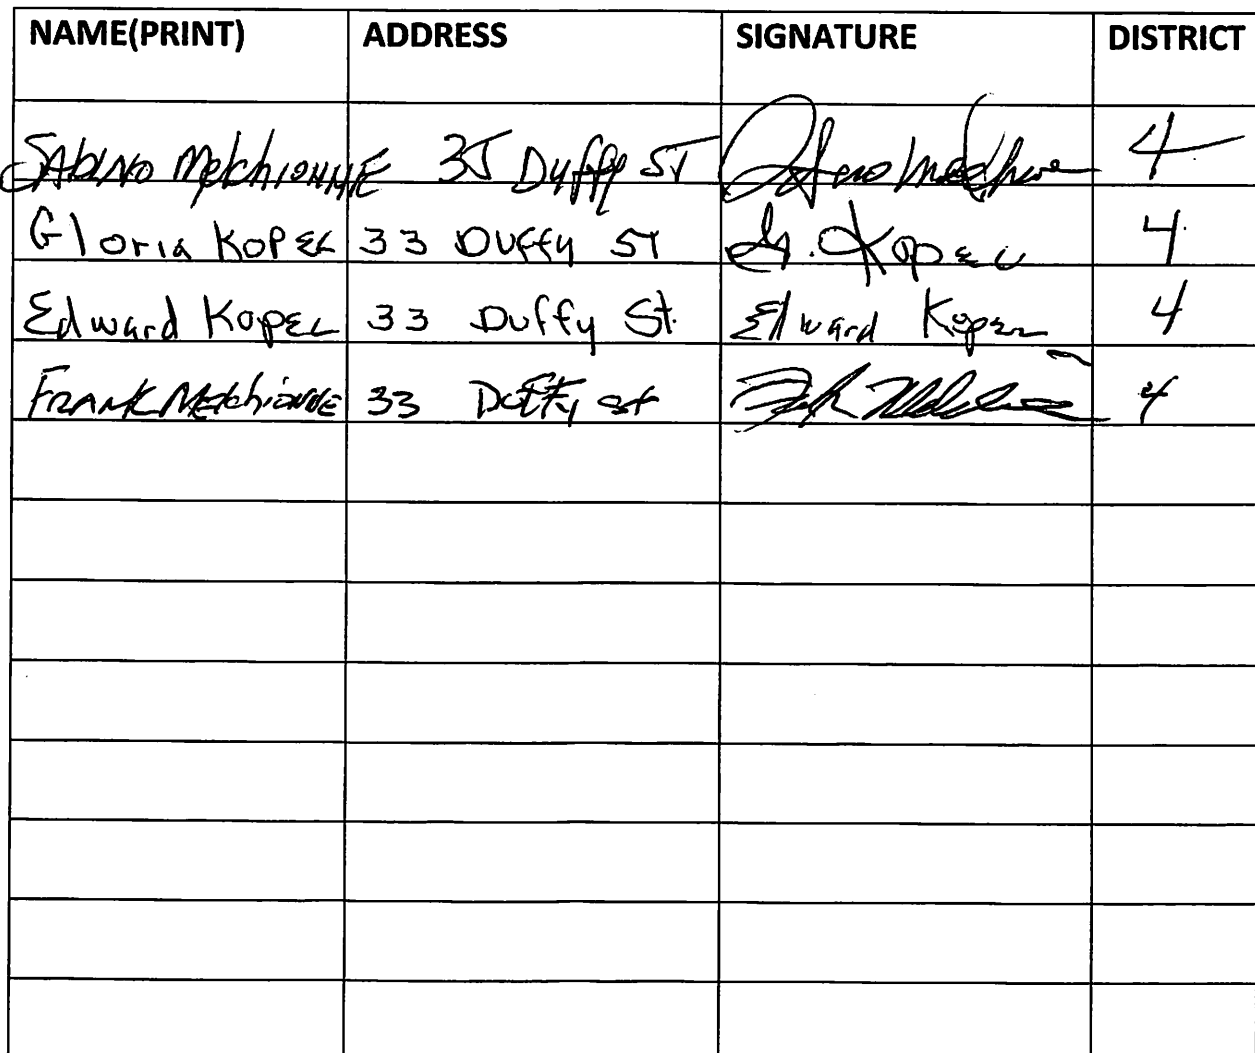 NAME(PRINT) ADDRESS SIGNATURE DISTRICT
SABINO Melchionne 35 Duffy ST 4
Gloria Kopec 33 Duffy ST G. Kopec 4
Edward Kopec 33 Duffy St. Edward Kopec 4
FRANK Melchionne 33 Duffy st 4